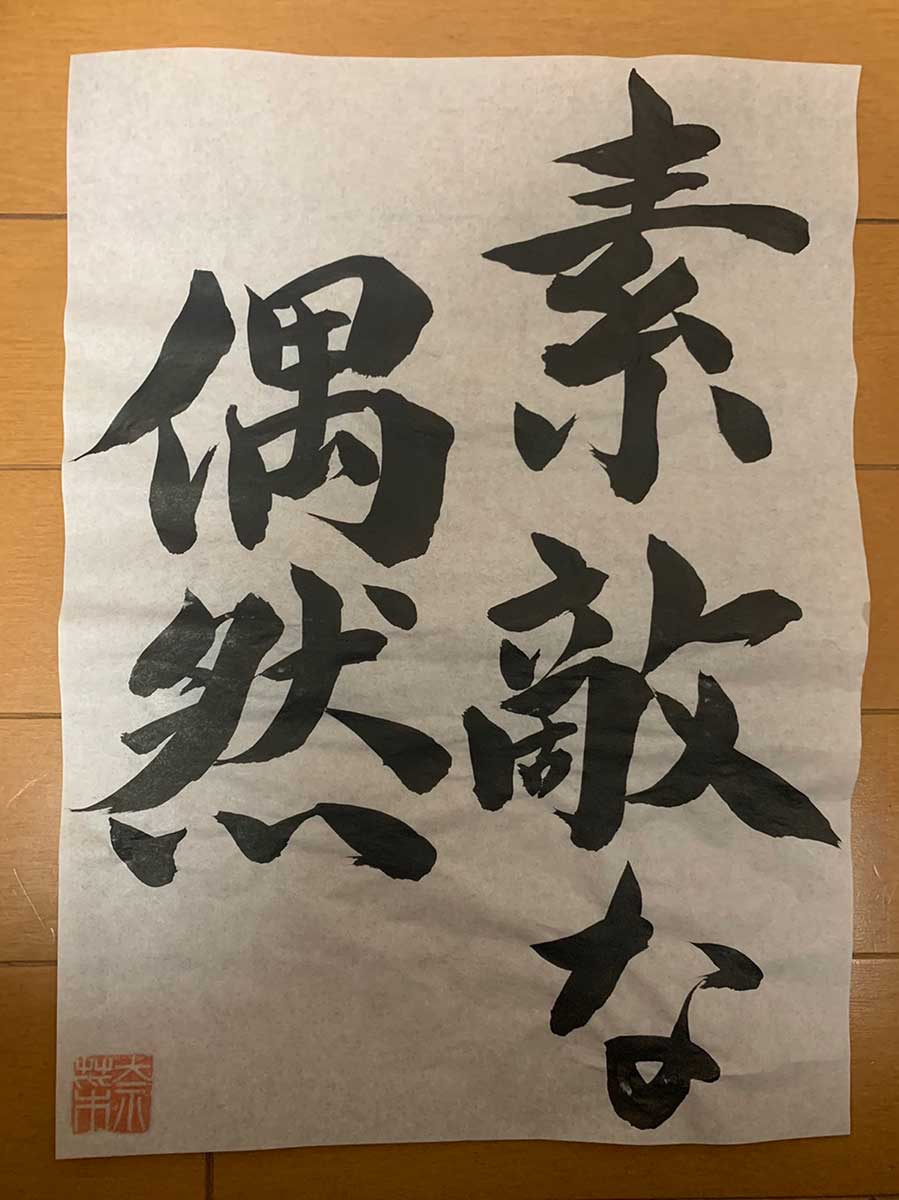 素敵な
偶然